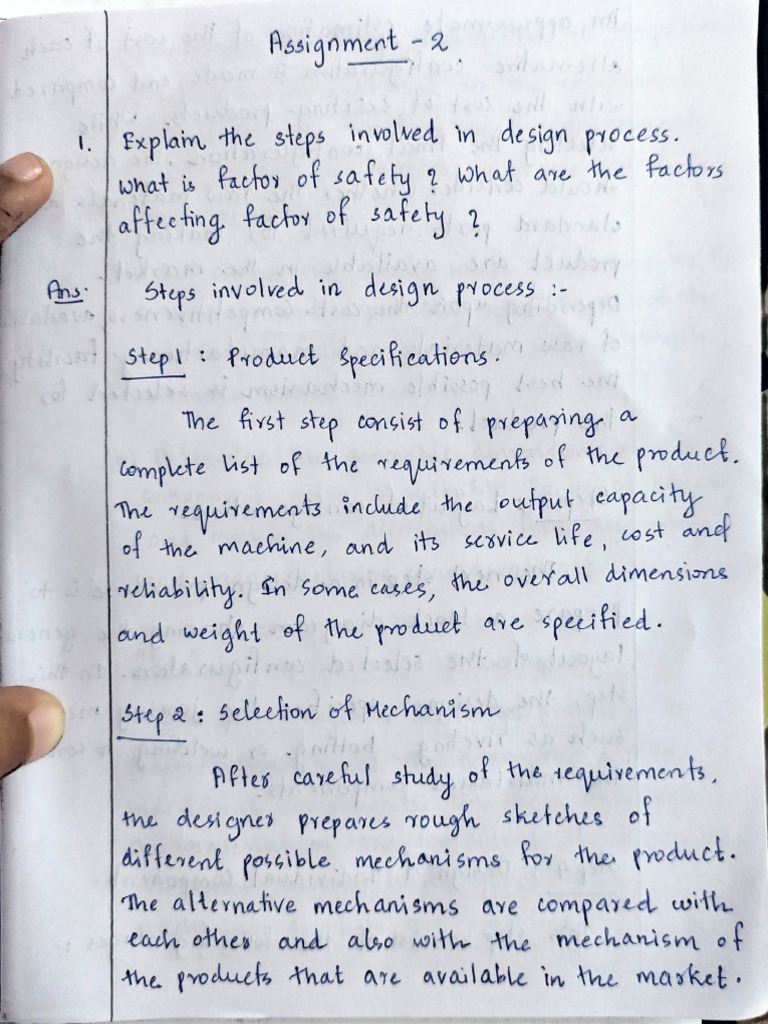 Assignment - 2
1. Explain the steps involved in design process.
What is factor of safety ? What are the factors
affecting factor of safety ?
Ans: Steps involved in design process :-
Step 1 : Product Specifications.
The first step consist of preparing a
complete list of the requirements of the product.
The requirements include the output capacity
of the machine, and its service life, cost and
reliability. In some cases, the overall dimensions
and weight of the product are specified.
Step 2 : Selection of Mechanism
After careful study of the requirements,
the designer prepares rough sketches of
different possible mechanisms for the product.
The alternative mechanisms are compared with
each other and also with the mechanism of
the products that are available in the market.